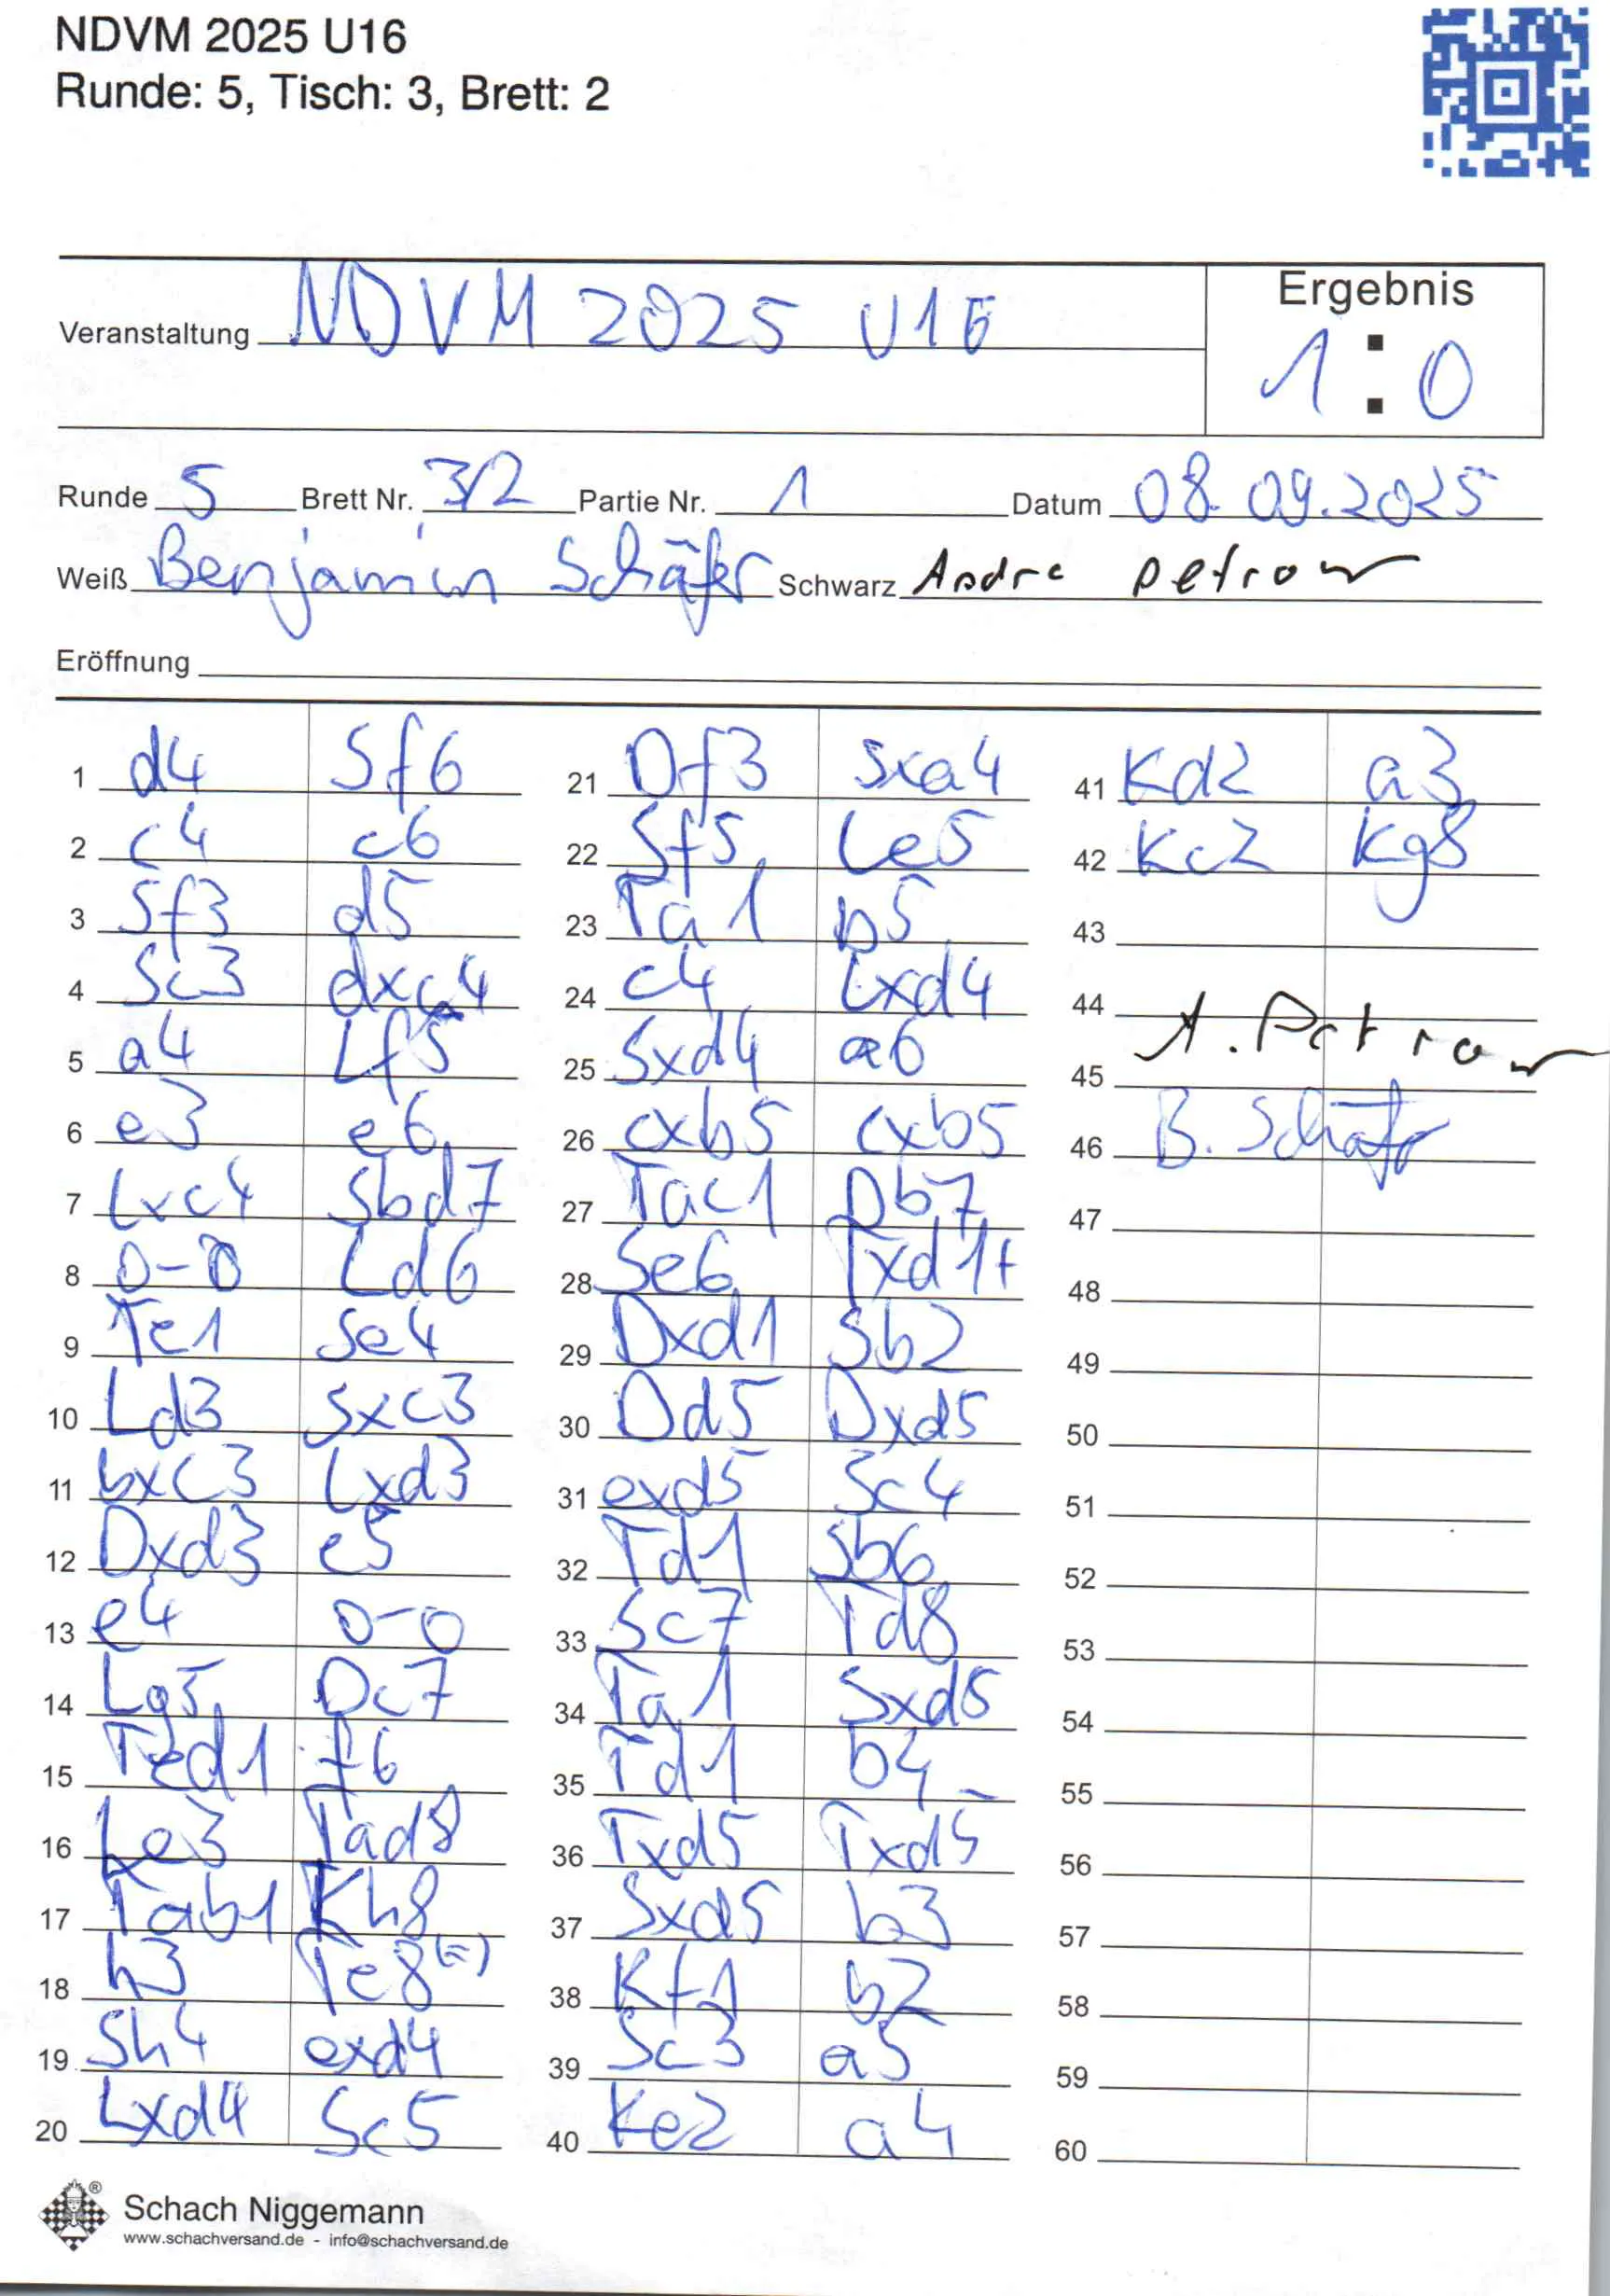 NDVM 2025 U16
Runde: 5, Tisch: 3, Brett: 2
Ergebnis
Veranstaltung NDVM 2025 U16
1:0
Runde 5 Brett Nr. 3/2 Partie Nr. 1 Datum 08.09.2025
Weiß Benjamin Schäfer Schwarz Andre Petrow
Eröffnung
1 d4 Sf6 21 Df3 Sxa4 41 Kd2 a3
2 c4 c6 22 Sf5 Le5 42 Kc2 Kg8
3 Sf3 d5 23 Ta1 b5 43
4 Sc3 dxc4 24 c4 Lxd4 44
A. Petrow
5 a4 Lf5 25 Sxd4 a6 45
6 e3 e6 26 cxb5 cxb5 46 B. Schäfer
7 Lxc4 Sbd7 27 Tac1 Db7 47
8 0-0 Ld6 28 Se6 Txd1+ 48
9 Te1 Se4 29 Dxd1 Sb2 49
10 Ld3 Sxc3 30 Dd5 Dxd5 50
11 bxc3 Lxd3 31 exd5 Sc4 51
12 Dxd3 e5 32 Td1 Sb6 52
13 e4 0-0 33 Sc7 Td8 53
14 Lg5 Dc7 34 Ta1 Sxd5 54
15 Ted1 f6 35 Td1 b4 55
16 Le3 Tad8 36 Txd5 Txd5 56
17 Tab1 Kh8 37 Sxd5 b3 57
18 h3 Te8(=) 38 Kf1 b2 58
19 Sh4 exd4 39 Sc3 a5 59
20 Lxd4 Sc5 40 Ke2 a4 60
Schach Niggemann ®
www.schachversand.de - info@schachversand.de